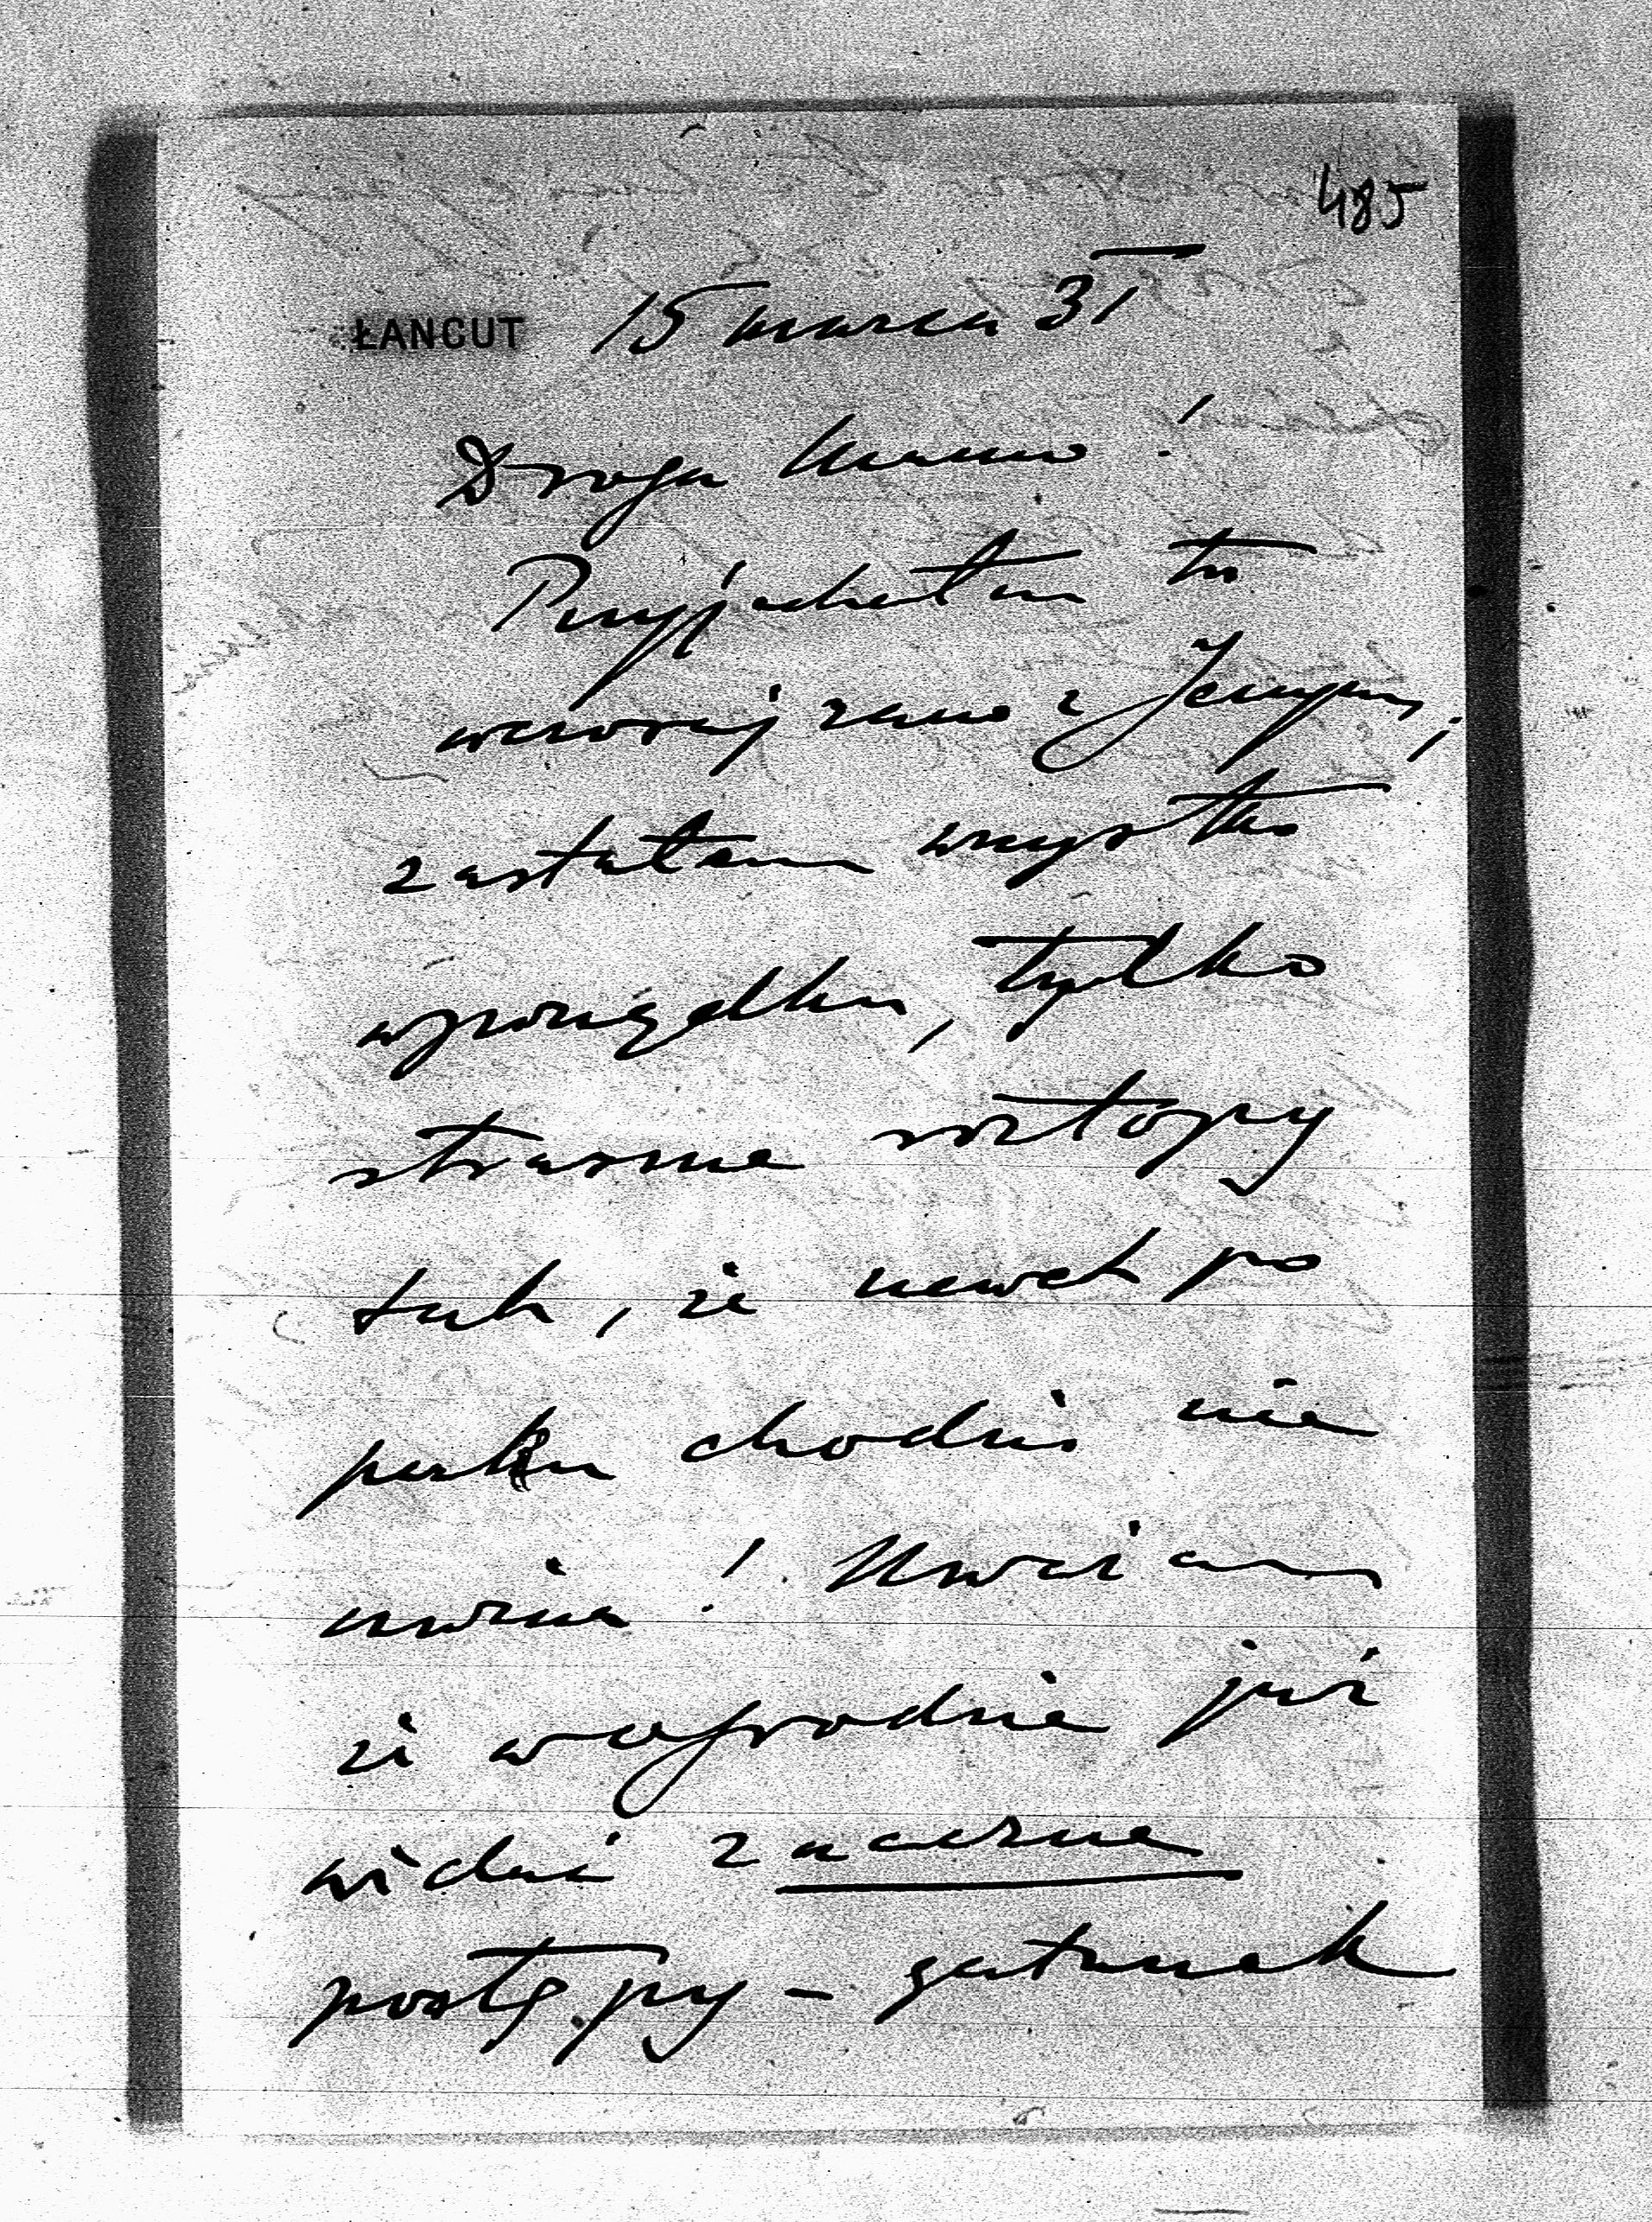 485
ŁANCUT 15 marca 31
Droga Mamo!
Przyjechałam tu
wczoraj rano z Jerzym,
zastałam wszystko
w porządku, tylko
straszne roztopy
tak, że nawet po
parku chodzić nie
można! Uważam
że w ogrodzie już
widać znaczne
postępy – gatunek